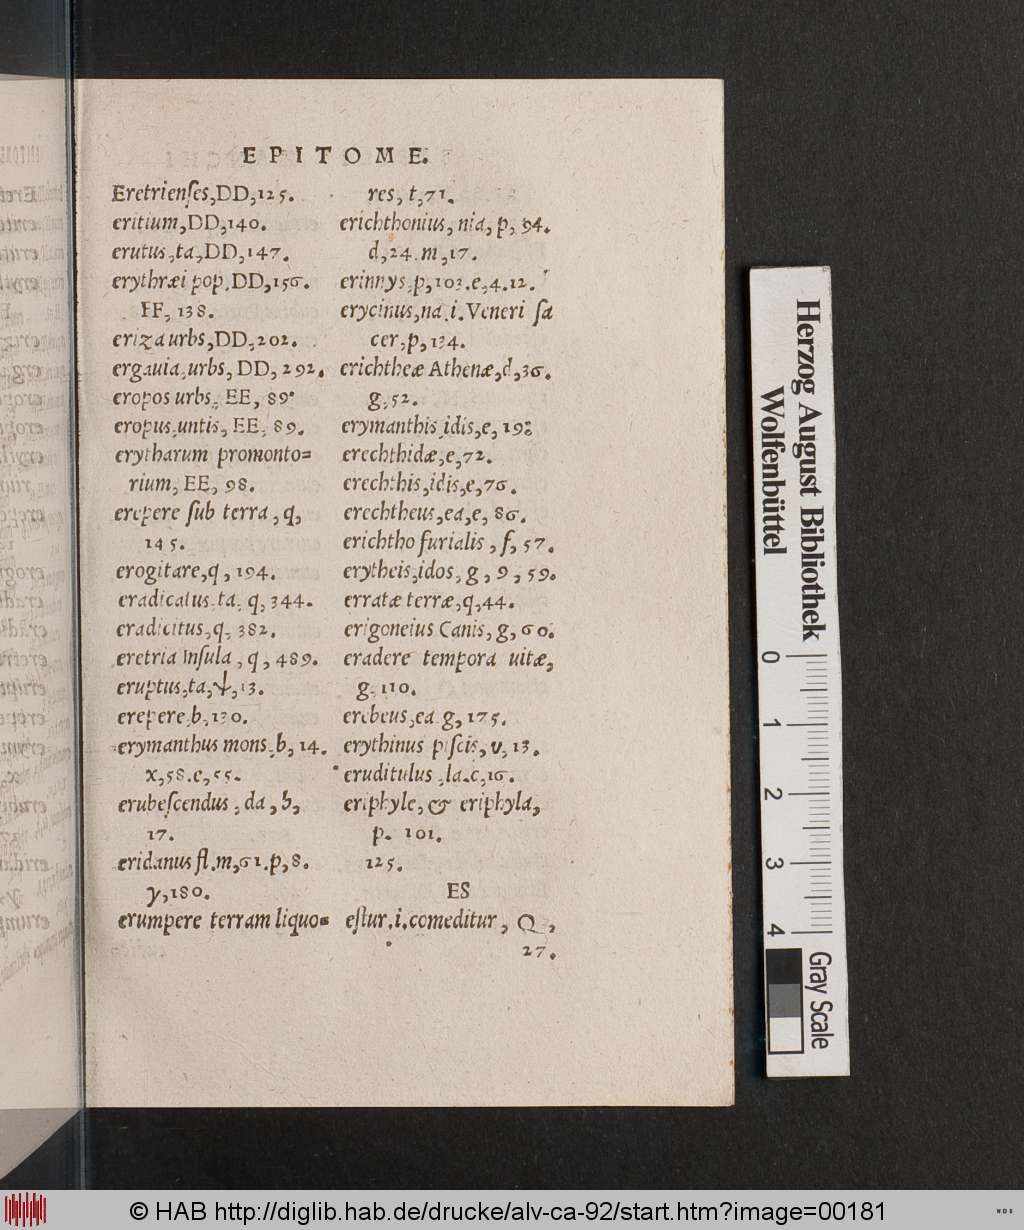 EPITOME.
Eretrienſes,DD,125.
eritium,DD,140.
erutus,ta,DD,147.
erythræi pop.DD,156.
FF,138.
eriza urbs,DD,202.
ergauia,urbs, DD, 292.
eropos urbs, EE, 89.
eropus,untis, EE, 89.
erytharum promonto=
rium, EE, 98.
erepere ſub terra, q,
145.
erogitare,q, 194.
eradicatus,ta, q, 344.
eradicitus,q, 382.
eretria Inſula, q, 489.
eruptus,ta,ψ,13.
erepere,b,130.
erymanthus mons,b, 14.
x,58.e,55.
erubeſcendus, da, b,
17.
eridanus fl.m,61.p,8.
y,180.
erumpere terram liquo=
res, t,71.
erichthonius, nia, p, 94.
d,24.m,17.
erinnys,p,103.e,4.12.
erycinus,na.i.Veneri ſa
cer,p,134.
erichtheæ Athenæ,d,36.
g,52.
erymanthis,idis,e, 198
erechthidæ,e,72.
erechthis,idis,e,76.
erechtheus,ea,e, 86.
erichtho furialis, f, 57.
erytheis,idos, g, 9, 59.
erratæ terræ,q,44.
erigoneius Canis, g, 60.
eradere tempora uitæ,
g,110.
erebeus,ea.g,175.
erythinus piſcis, v, 13.
eruditulus,la.c,16.
eriphyle, & eriphyla,
p. 101.
125.
ES
eſtur.i.comeditur, Q,
27.
Herzog August Bibliothek
Wolfenbüttel
0 1 2 3 4
Gray Scale
© HAB http://diglib.hab.de/drucke/alv-ca-92/start.htm?image=00181